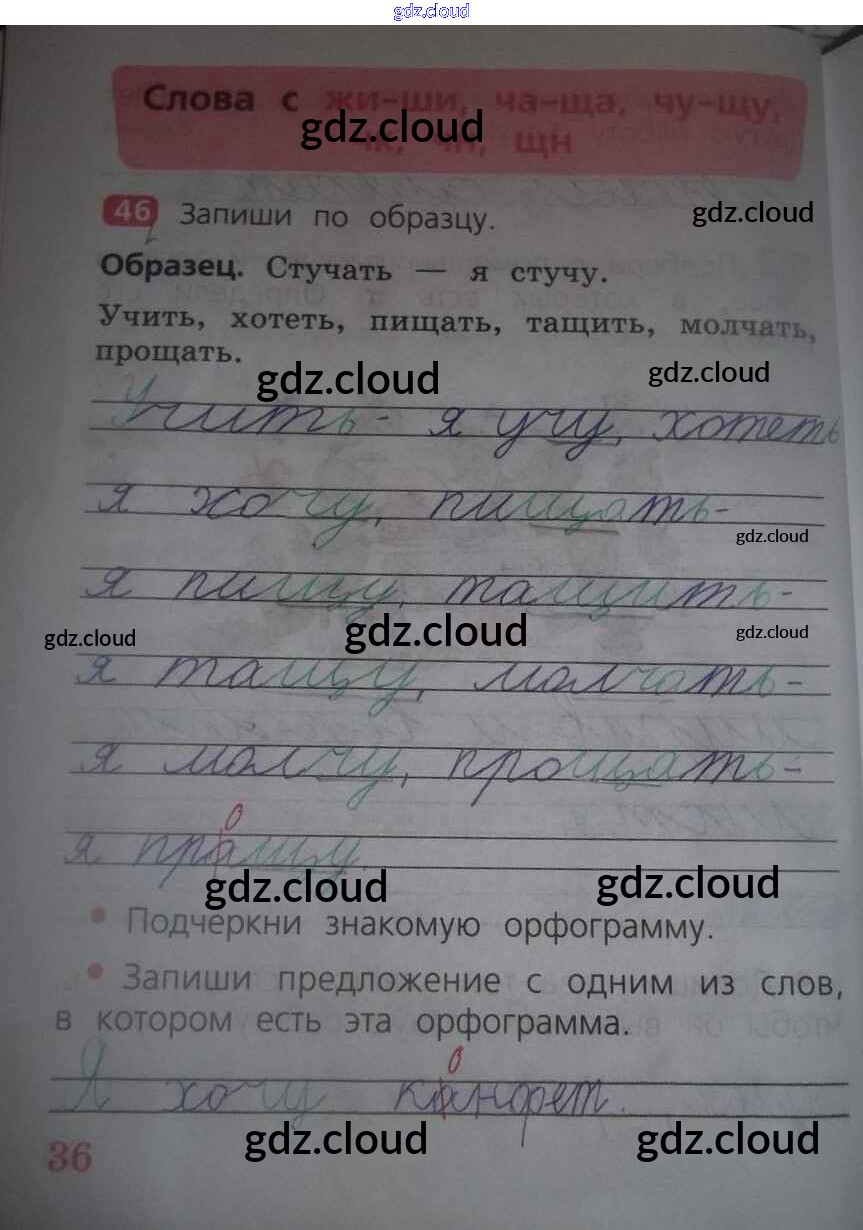 gdz.cloud
Слова с жи–ши, ча–ща, чу–щу,
gdz.cloud
чк, чн, щн
46 Запиши по образцу.
gdz.cloud
Образец. Стучать — я стучу.
Учить, хотеть, пищать, тащить, молчать,
прощать.
gdz.cloud gdz.cloud
Учить - я учу, хотеть
я хочу, пищать-
gdz.cloud
я пищу, тащить-
gdz.cloud gdz.cloud gdz.cloud
я тащу, молчать-
я молчу, прощать-
о
я пращу.
gdz.cloud gdz.cloud
• Подчеркни знакомую орфограмму.
• Запиши предложение с одним из слов,
в котором есть эта орфограмма.
о
Я хочу канфет.
gdz.cloud gdz.cloud
36